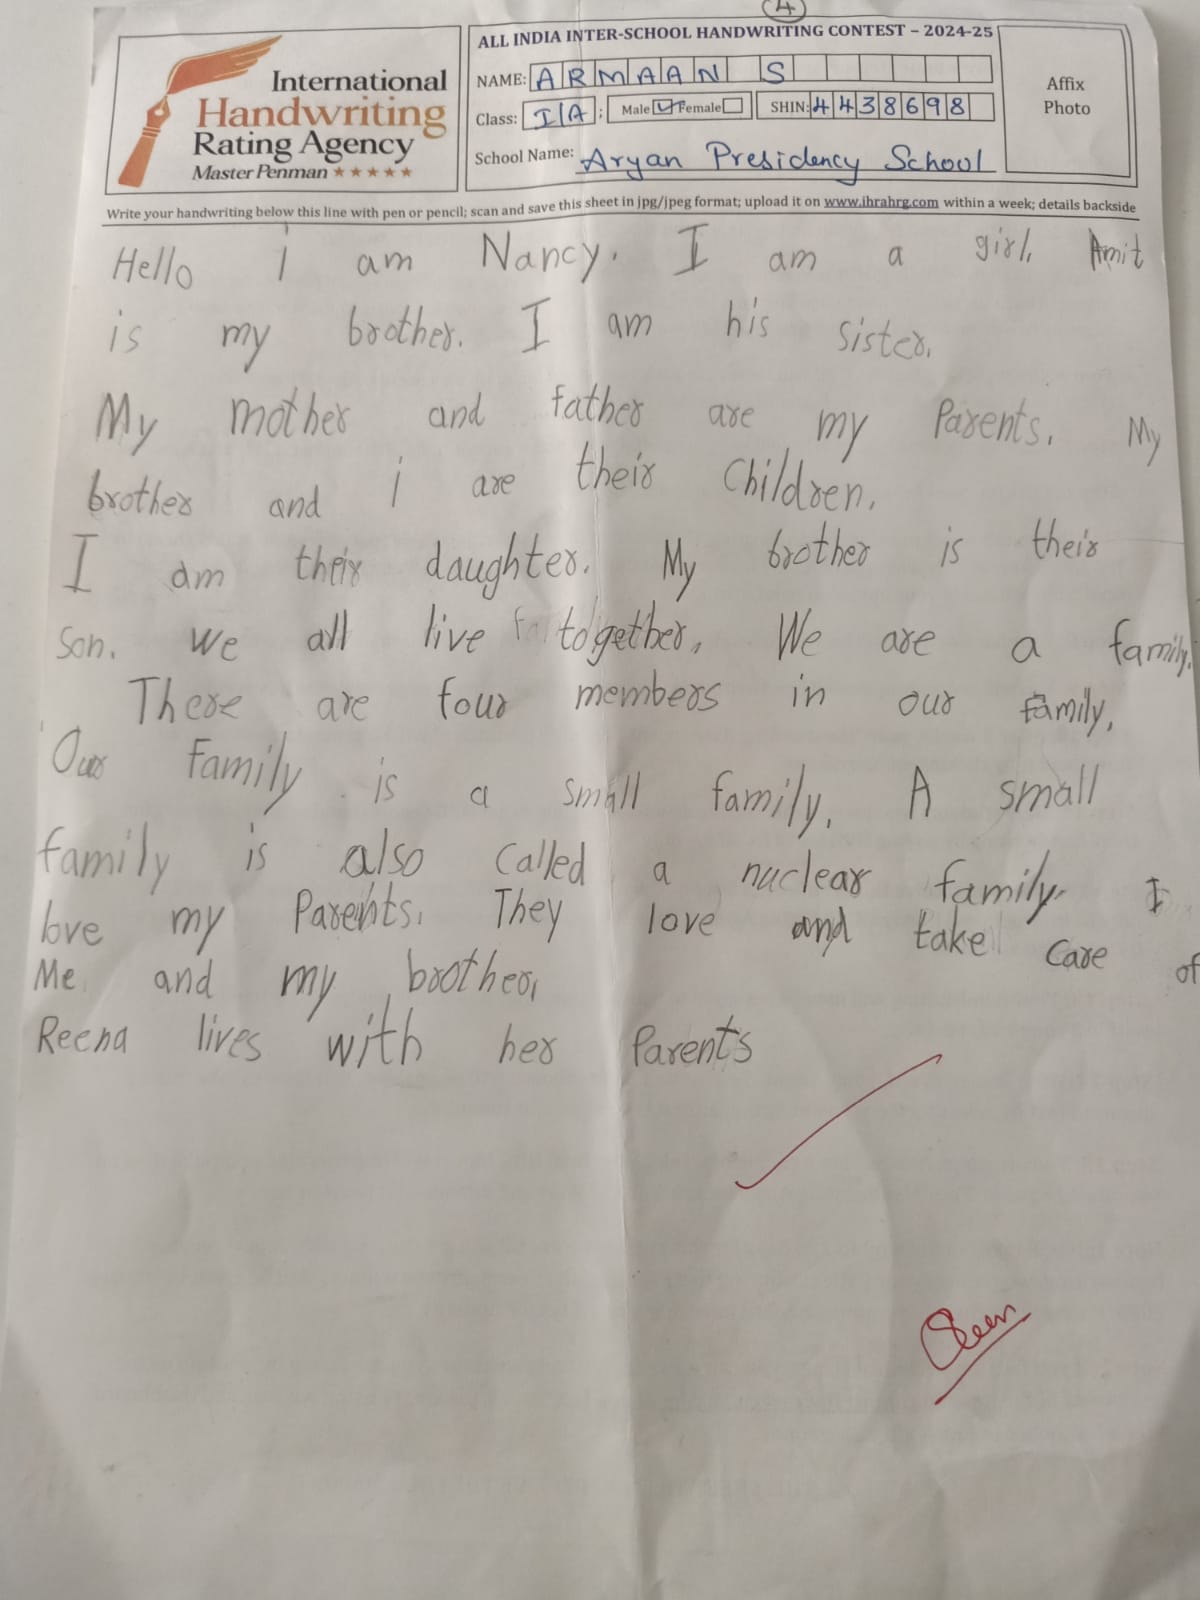 4
International
Handwriting
Rating Agency
Master Penman ★★★★★
ALL INDIA INTER-SCHOOL HANDWRITING CONTEST – 2024-25
NAME: ARMAAN S
Class: I A : Male Female SHIN: 4438698
School Name: Aryan Presidency School
Affix
Photo
Write your handwriting below this line with pen or pencil; scan and save this sheet in jpg/jpeg format; upload it on www.ihrahrg.com within a week; details backside
Hello i am Nancy. I am a girl. Amit
is my brother. I am his sister.
My mother and father are my Parents. My
brother and i are their Children.
I am their daughter. My brother is their
Son. We all live together. We are a family.
There are four members in our family.
Our Family is a small family. A small
family is also called a nuclear family. I
love my Parents. They love and take care of
Me and my brother.
Reena lives with her Parents
Seen